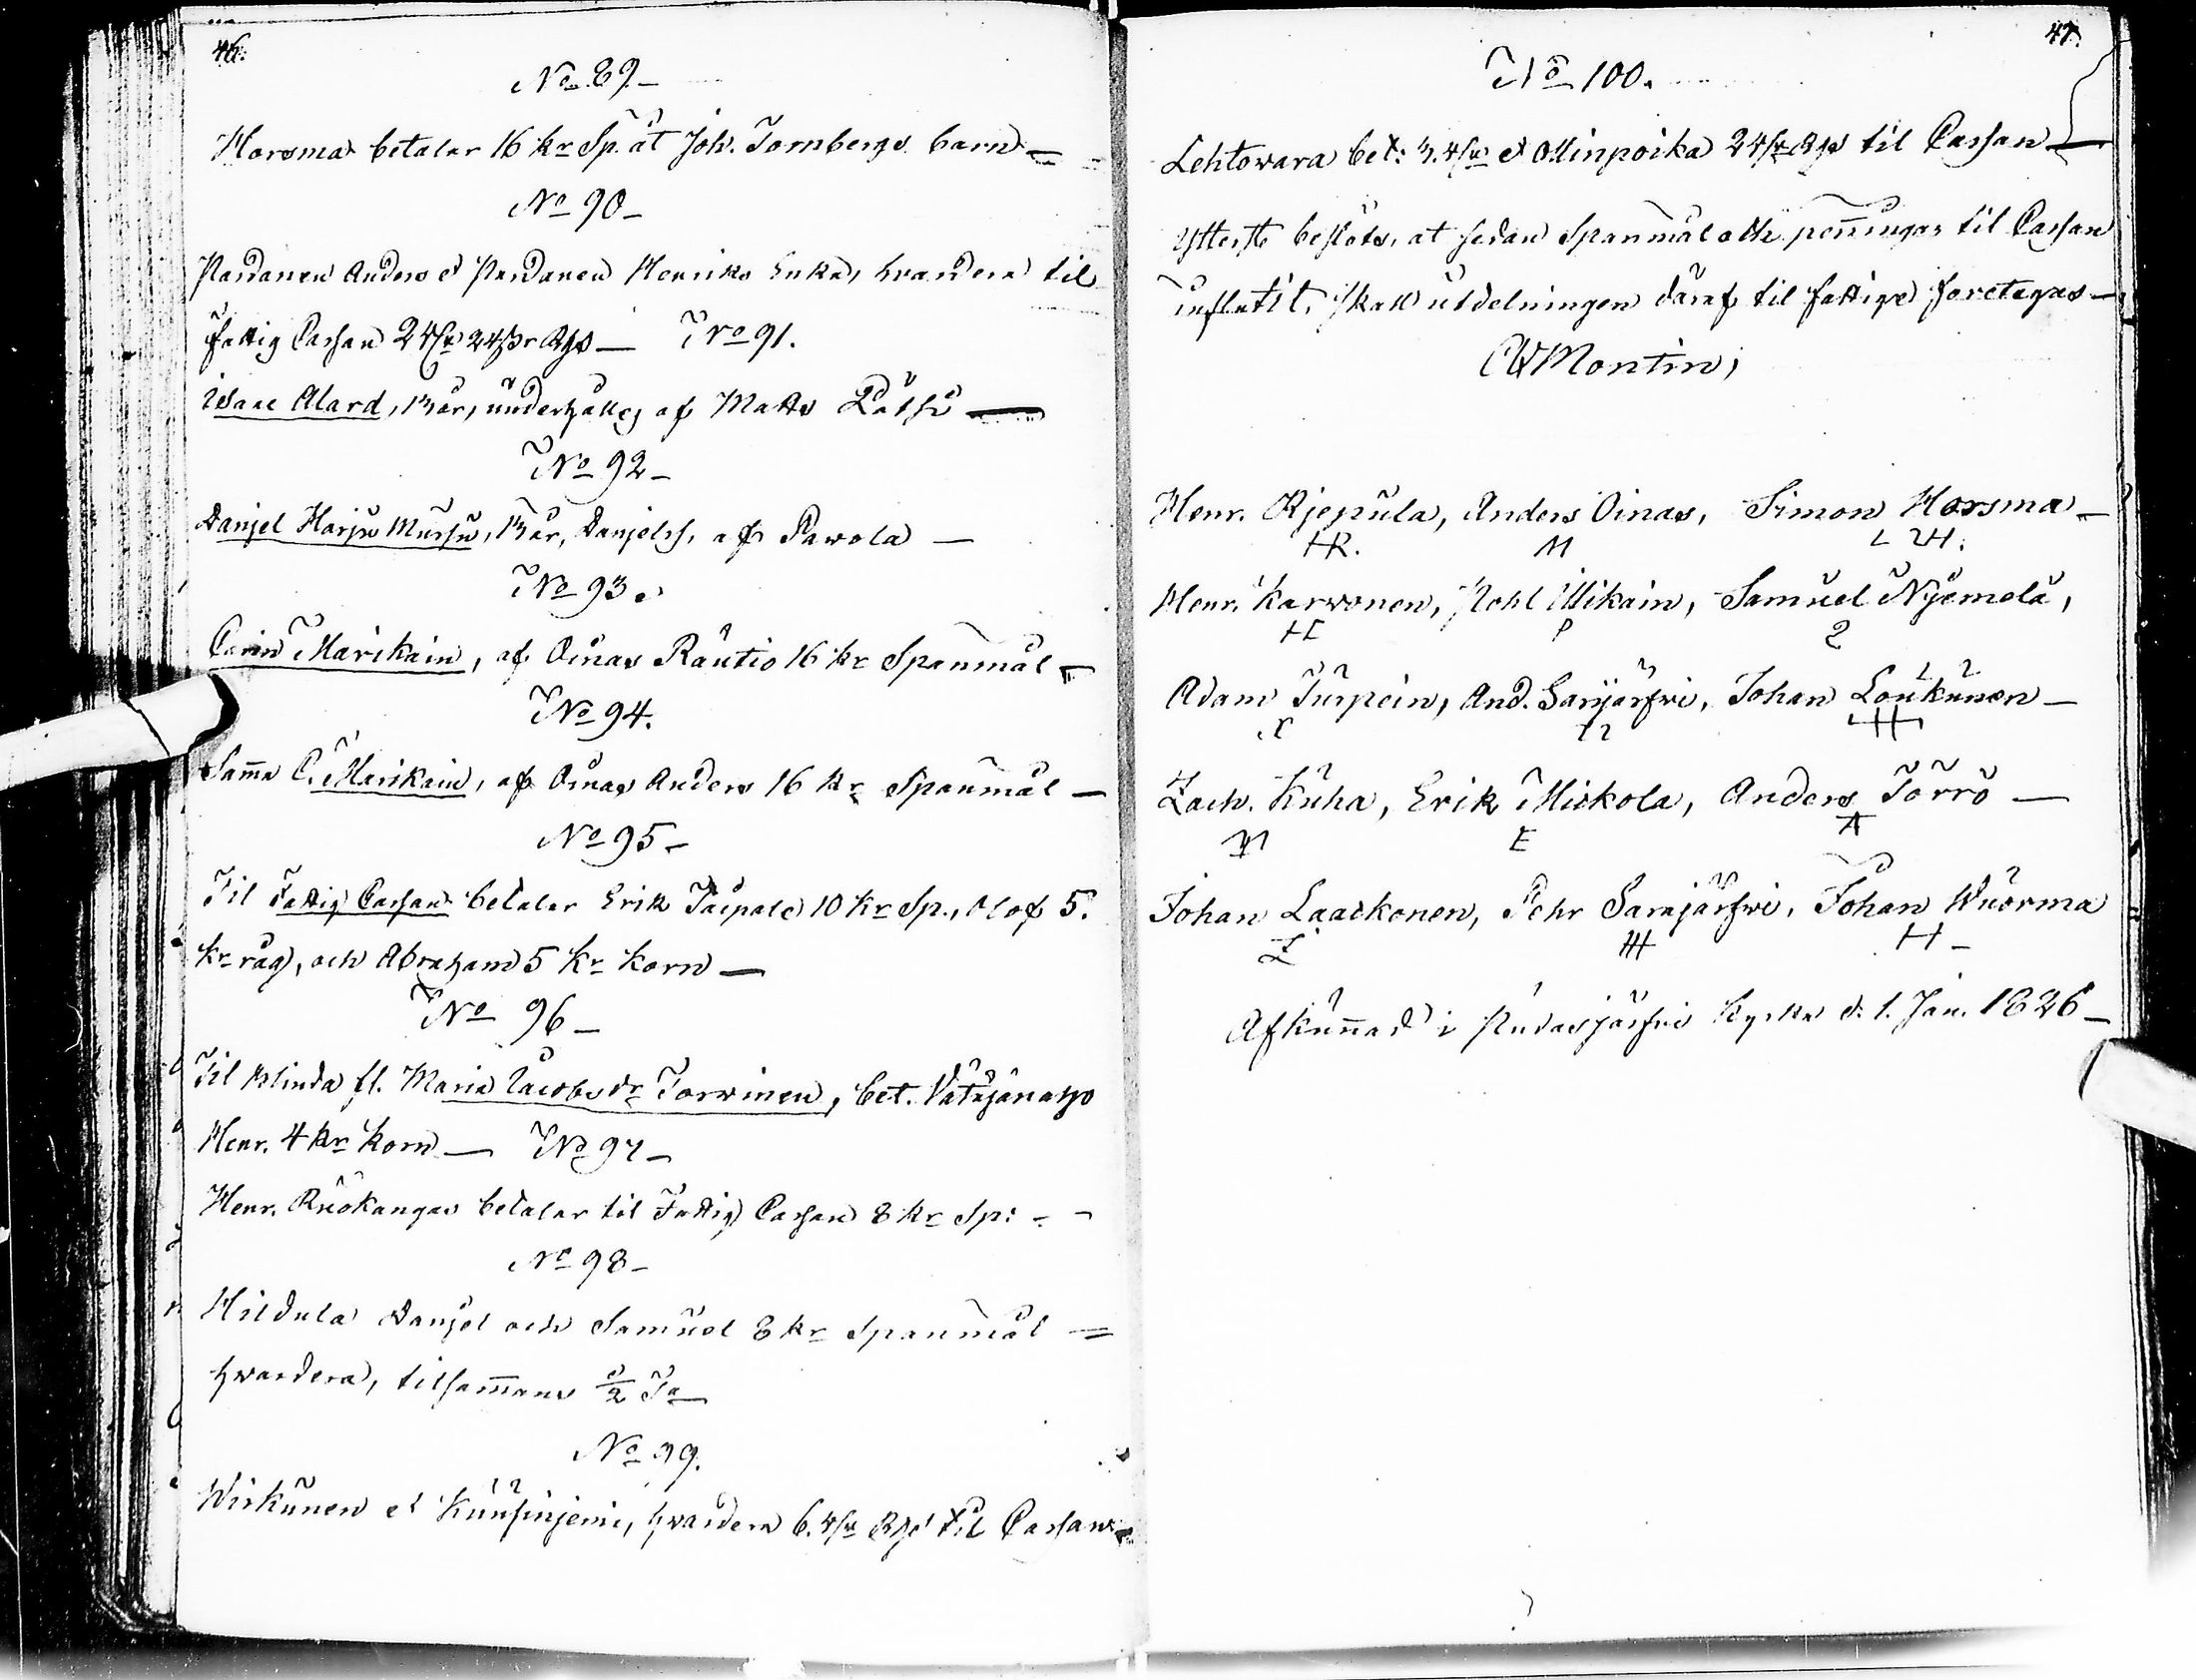 46.
No 89. –
Horsma betalar 16 kr Sp. åt Joh. Tornbergs barn –
No 90 –
Pardanen Anders et Pardanen Henriks Enka, hvardera til
fattig Cassan 2 24 Rgs — No 91.
Isaac Alard, 13 år, underhålles af Matts Lätsi —
No 92 –
Danjel Harju Mursu, 13 år, Danjelss. af Pawola —
No 93.
Carin Marikain, af Oinas Rautio 16 kr Spanmål –
No 94.
Samma C. Marikain, af Oinas Anders 16 kr Spanmål —
No 95 –
Til Fattig Cassan betalar Erik Taipale 10 kr Sp., Olof 5.
kr råg, och Abraham 5 kr Korn —
No 96 –
Til blinda fl. Maria Jacobsdr Torwinen, bet. Vätäjänaho
Henr. 4 kr Korn — No 97 –
Henr. Ruokangas betalar til Fattig Cassan 8 kr Sp: - -
No 98 –
Hildula Danjel och Samuel 8 kr Spanmål =
hvardera, tilsammans 1/2 Ta
No 99.
Wirkunen et Kuusinjemi, hvardera 6. Rgs til Cassan
47.
No 100.
Lehtowara bet: 3. et Ollinpoika 24 Rgs til Cassan —
Ytterst beslöts, at sedan Spanmål och penningar til Cassan
influtit, skall utdelningen däraf til fattige foretagas –
Montin;
Henr. Rjepula, Anders Oinas, Simon Horsma –
HR. M
Henr. Karwonen, Pohl Illikain, Samuel Njemelä,
P 2
Adam Turpein, And. Sarijärfwi, Johan Loukunen –
H
Zach. Kuha, Erik Mickola, Anders Törrö —
E A
Johan Laackonen, Pehr Sarajärfwi, Johan Wuorma
H –
Afkunnad i Pudasjärfwi Kyrka d. 1. Jan. 1826 –